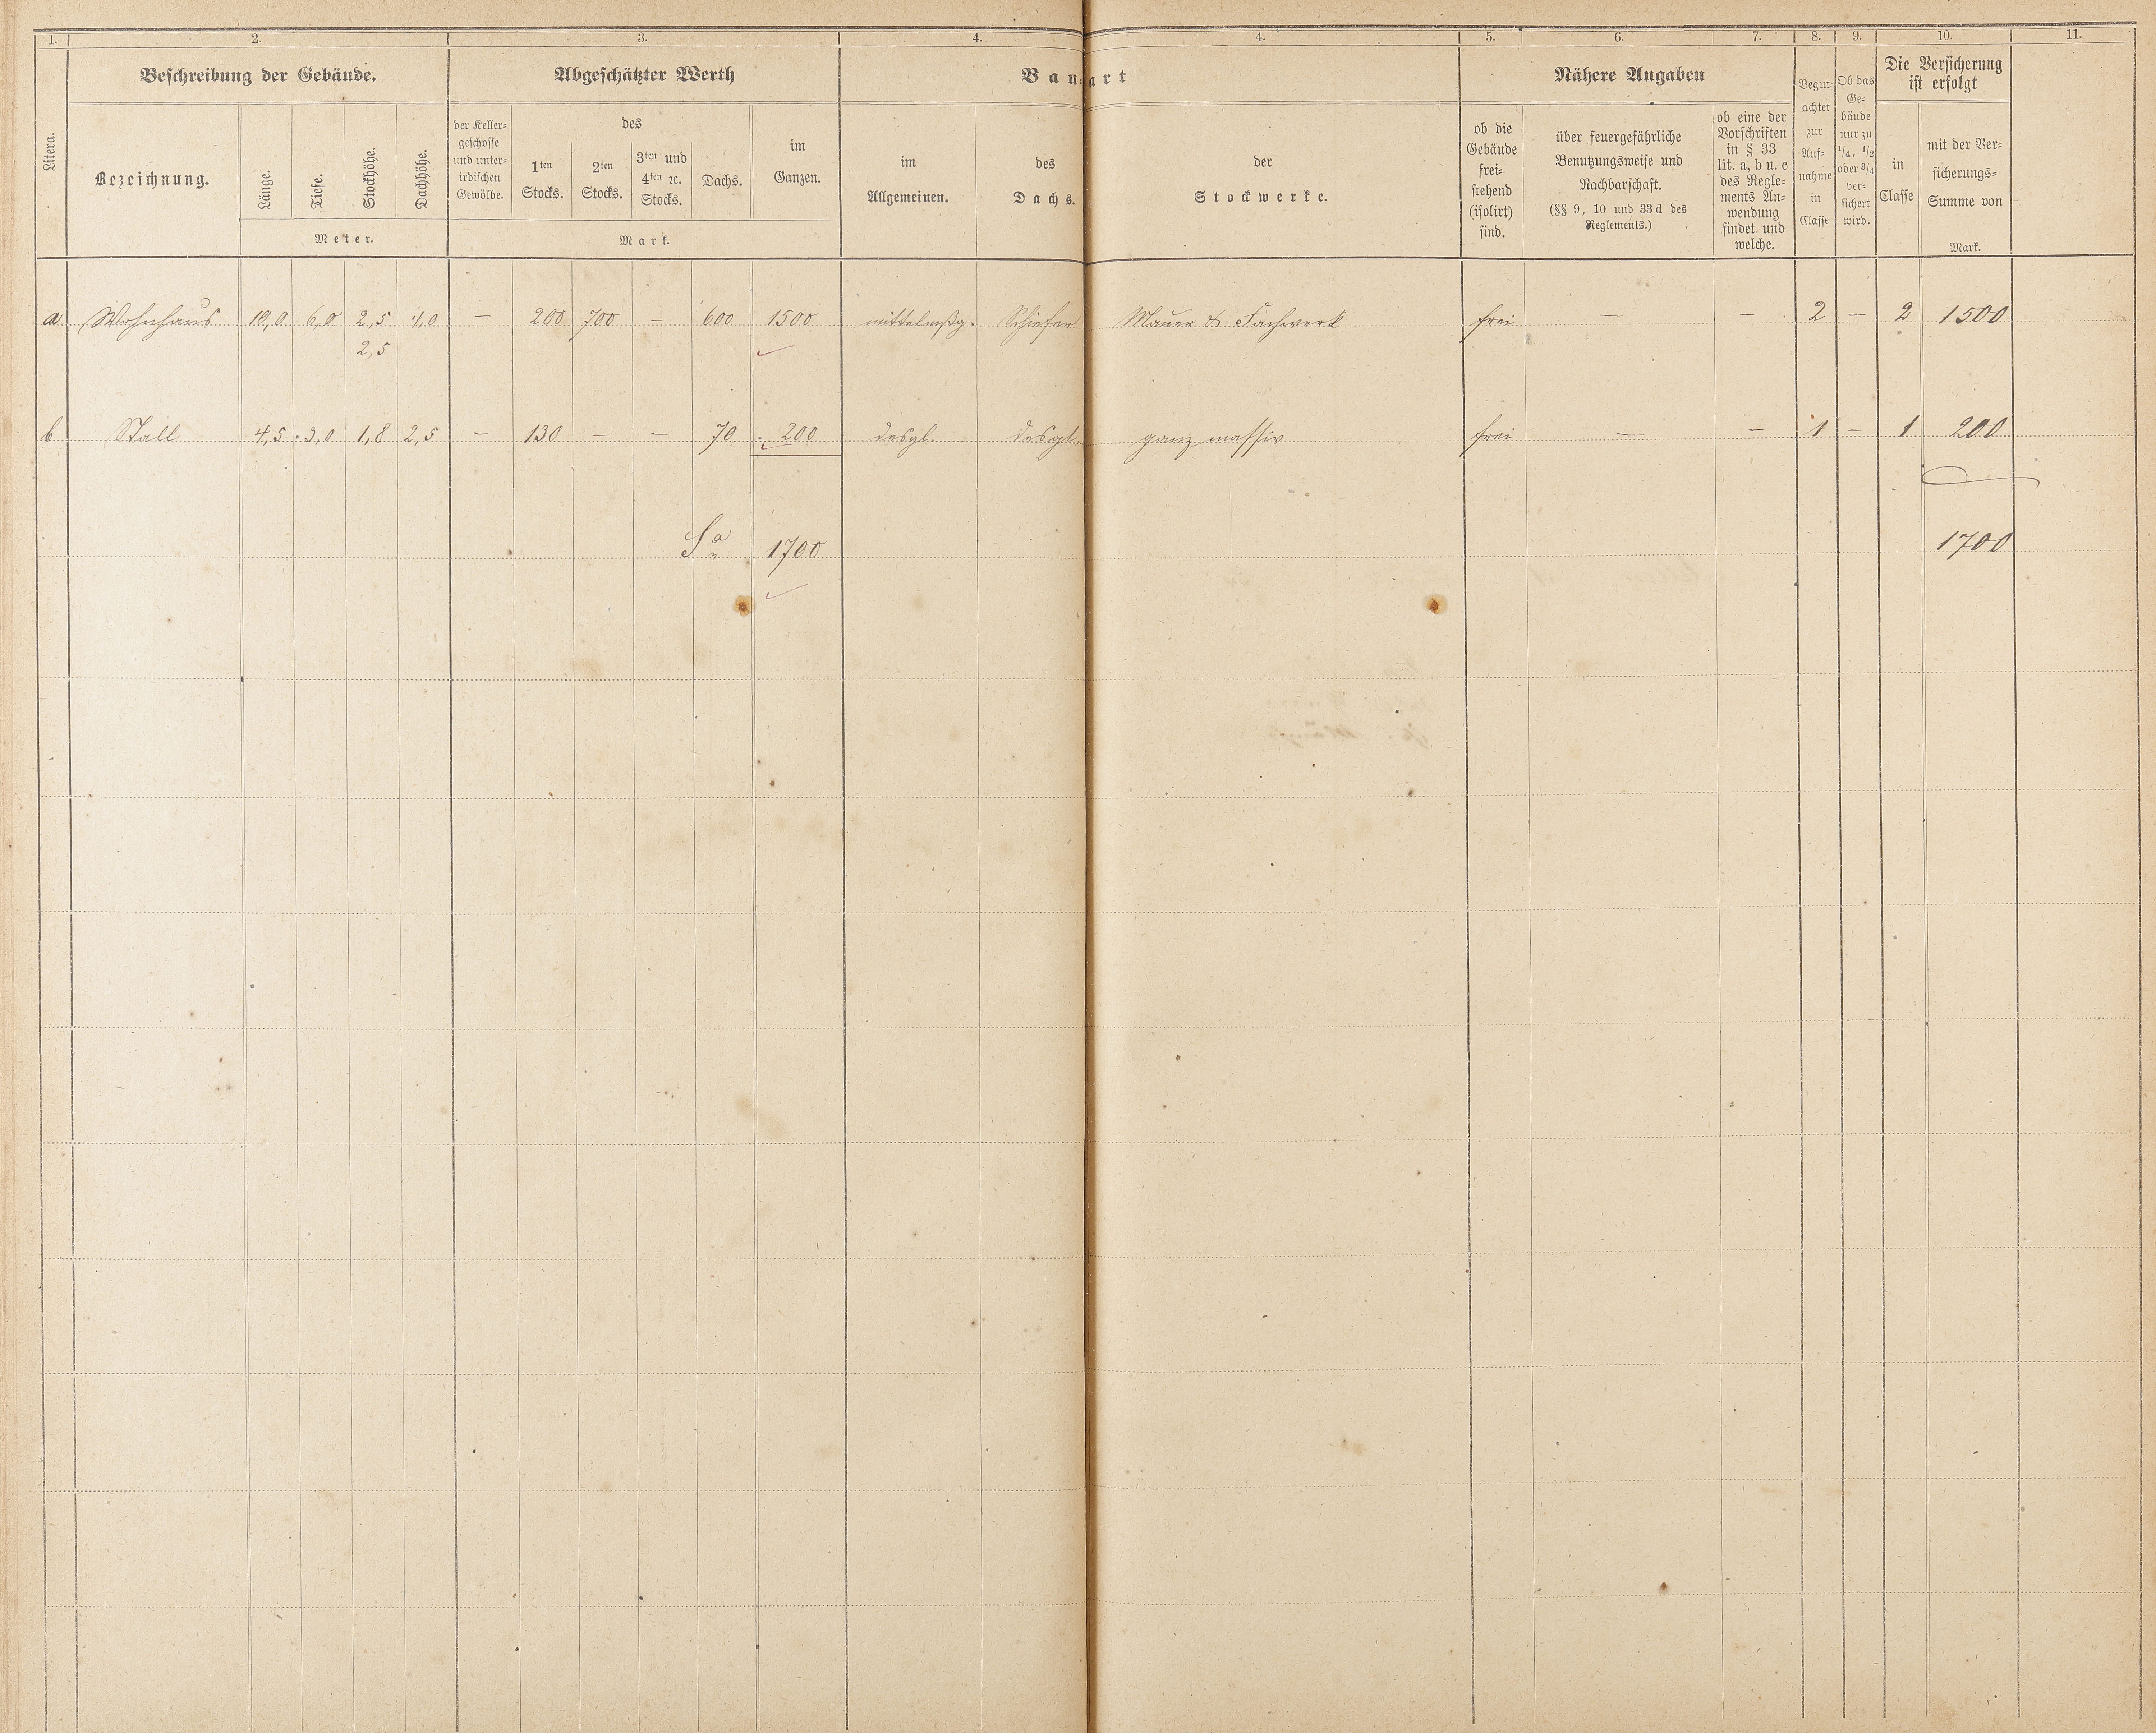 1. 2. 3. 4. 4. 5. 6. 7. 8. 9. 10. 11.
Litera.
Beschreibung der Gebäude.
Bezeichnung.
Länge.
Tiefe.
Stockhöhe.
Dachhöhe.
Meter.
Abgeschätzter Werth
der Keller-
geschosse
und unter-
irdischen
Gewölbe.
des
1ten
Stocks.
2ten
Stocks.
3ten und
4ten ꝛc.
Stocks.
Dachs.
im
Ganzen.
Mark.
Bauart
im
Allgemeinen.
des
Dachs.
der
Stockwerke.
Nähere Angaben
ob die
Gebäude
frei-
stehend
(isolirt)
sind.
über feuergefährliche
Benutzungsweise und
Nachbarschaft.
(§§ 9, 10 und 33 d des
Reglements.)
ob eine der
Vorschriften
in § 33
lit. a, b u. c
des Regle-
ments An-
wendung
findet und
welche.
Begut-
achtet
zur
Auf-
nahme
in
Classe
Ob das
Ge-
bäude
nur zu
1/4, 1/2
oder 3/4
ver-
sichert
wird.
Die Versicherung
ist erfolgt
in
Classe
mit der Ver-
sicherungs-
Summe von
Mark.
a. Wohnhaus 10,0 6,0 2,5 4,0 — 200 700 — 600 1500 mittelmßg. Schiefer Mauer & Fachwerk frei — — 2 — 2 1500
2,5
b. Stall 4,5 3,0 1,8 2,5 — 130 — — 70 200 desgl. desgl. ganz massiv frei — — 1 — 1 200
Sa 1700 1700